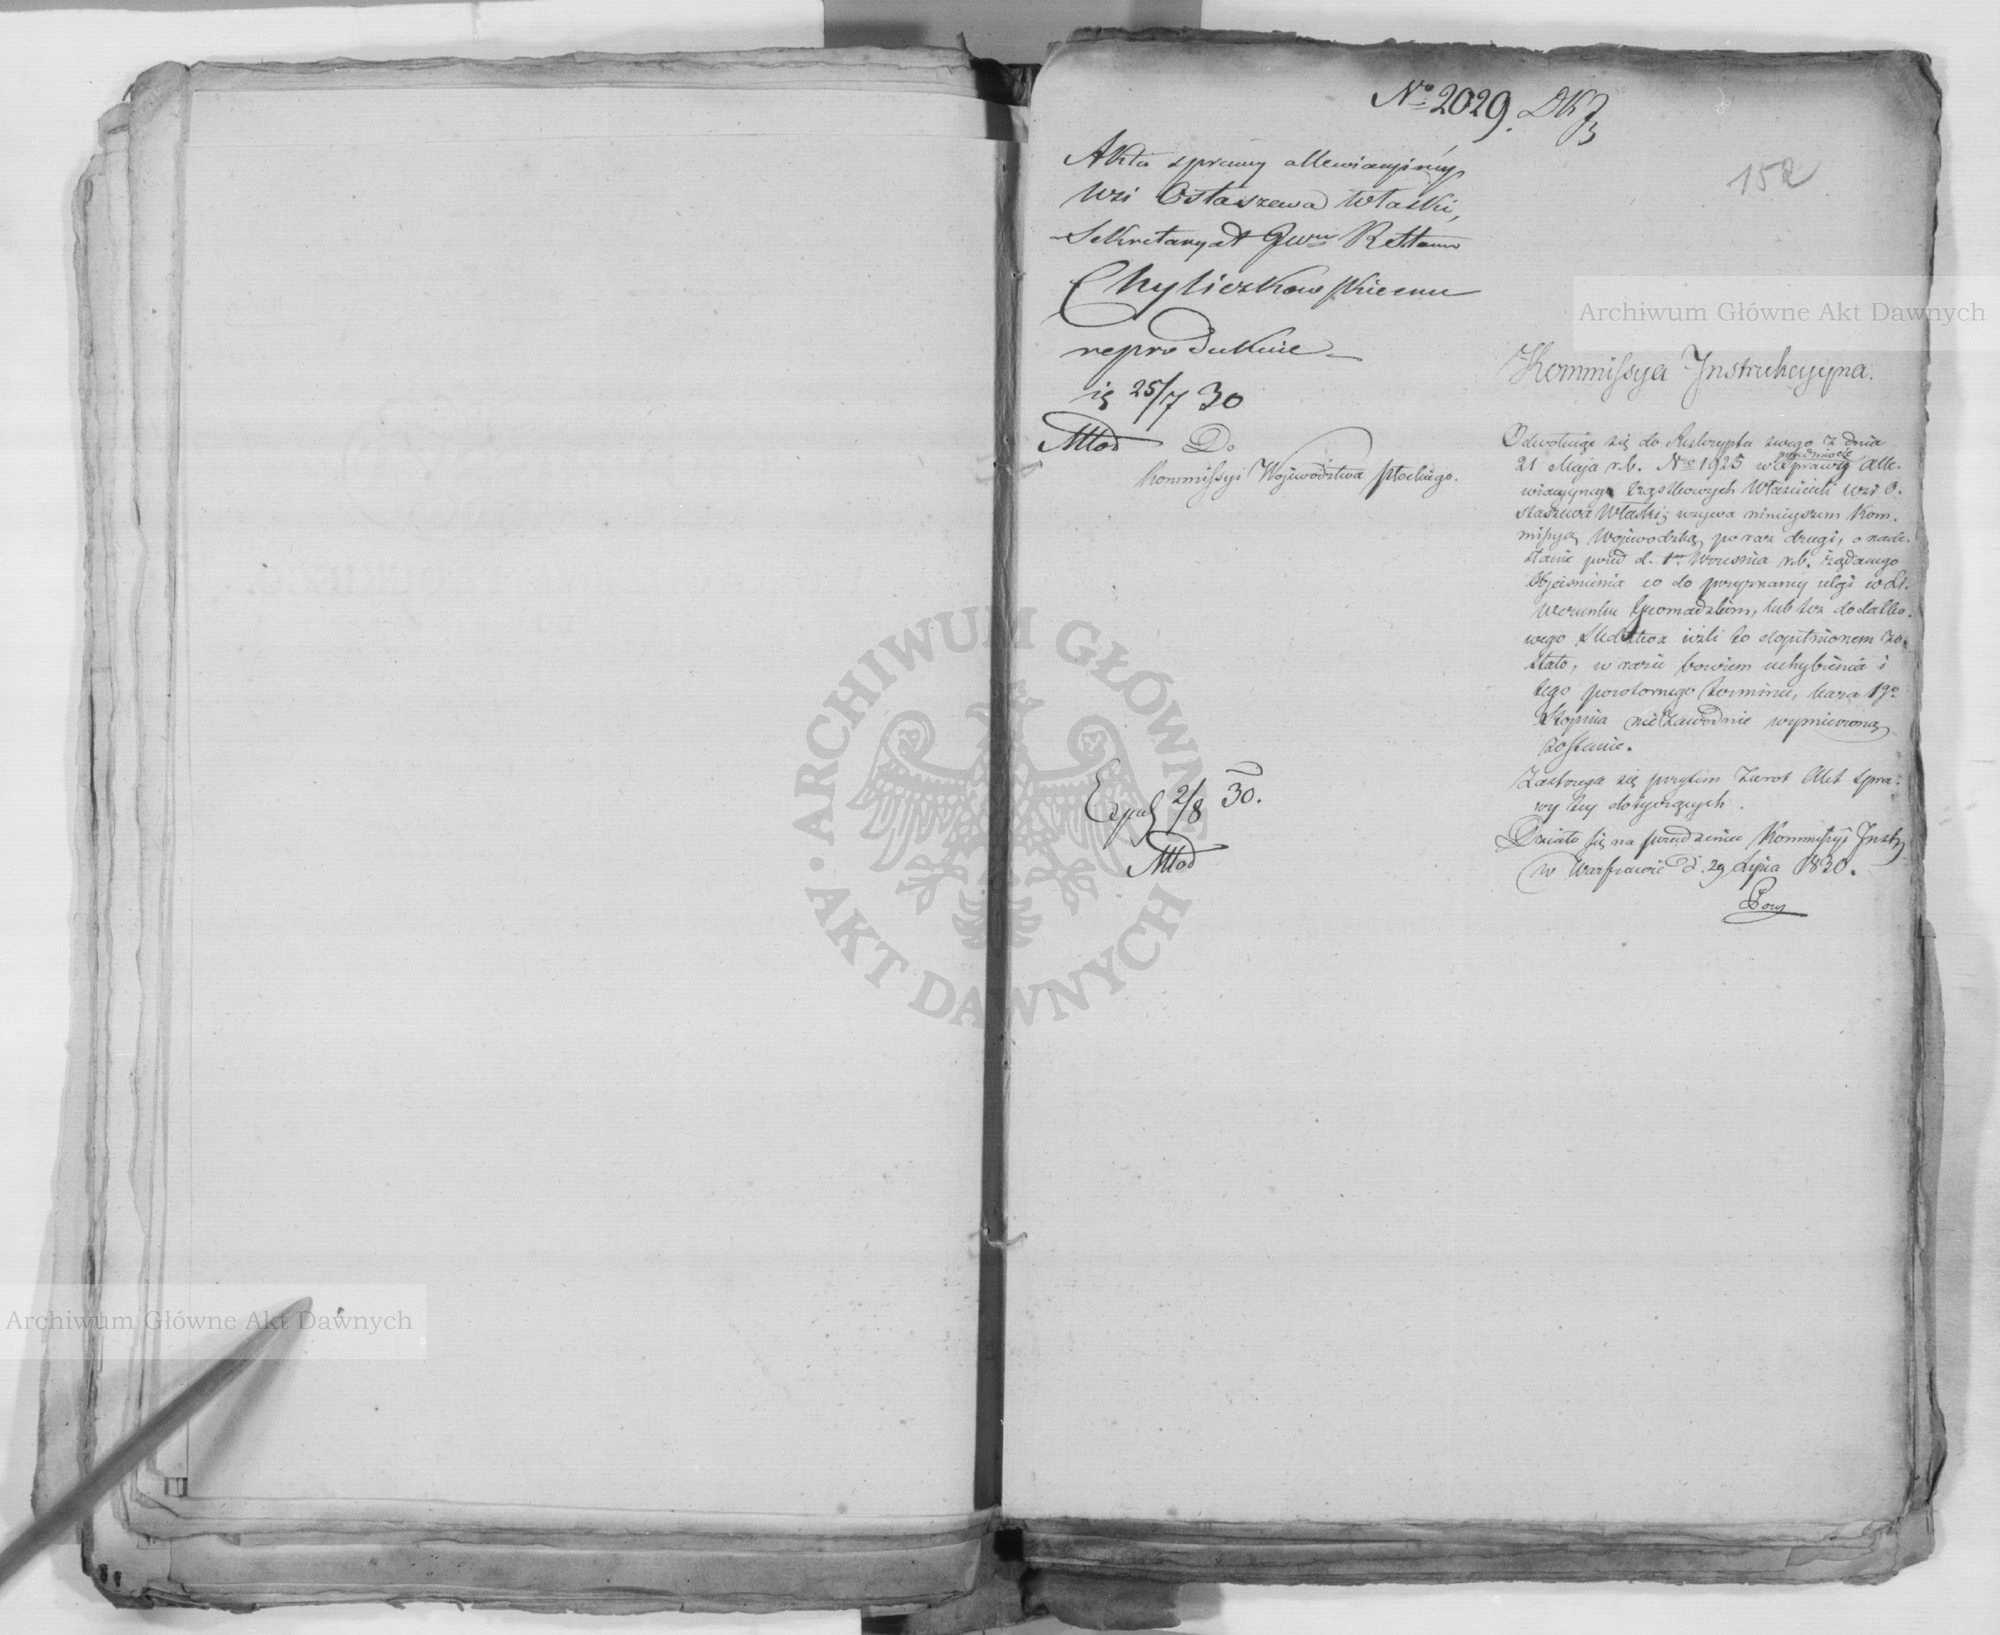 No 2029. DKJ
152
Akta sprawy allewiacyjnéy
Wsi Ostaszewa Właski,
Sekretaryat Gwny Rettowi
Chyliczkowskiemu
reprodukuie
ię 25/7 30
Młod
Do
Kommissyi Województwa Płockiego.
Expud 2/8 30.
Młod
Kommissya Instrukcyyna.
Odwołuiąc się do Reskryptu swego z dnia
21 Maja r.b. No 1925 w przedmiocie sprawy alle-
wiacyyney Cząstkowych Właścicieli wsi O-
staszewa Właski, wzywa ninieyszem Kom-
missyą Wojewodzką po raz drugi, o nade-
słanie przed d. 1m Września r.b. żądanego
Objaśnienia co do przyznaney ulgi w Li-
werunku Gromadzkim, lub też dodatko-
wego Śledztwa ieżli to dopełnionem zo-
stało, w razie bowiem uchybienia i
tego powtornego terminu, kara 1go
Stopnia niezawodnie wymierzoną
zostanie.
Zastrzega się przytém zwrot Akt spra-
wy tey dotyczących.
Działo się na posiedzeniu Kommissyi Instr
w Warszawie d. 29 Lipca 1830.
Archiwum Główne Akt Dawnych
Archiwum Główne Akt Dawnych
ARCHIWUM GŁÓWNE
AKT DAWNYCH